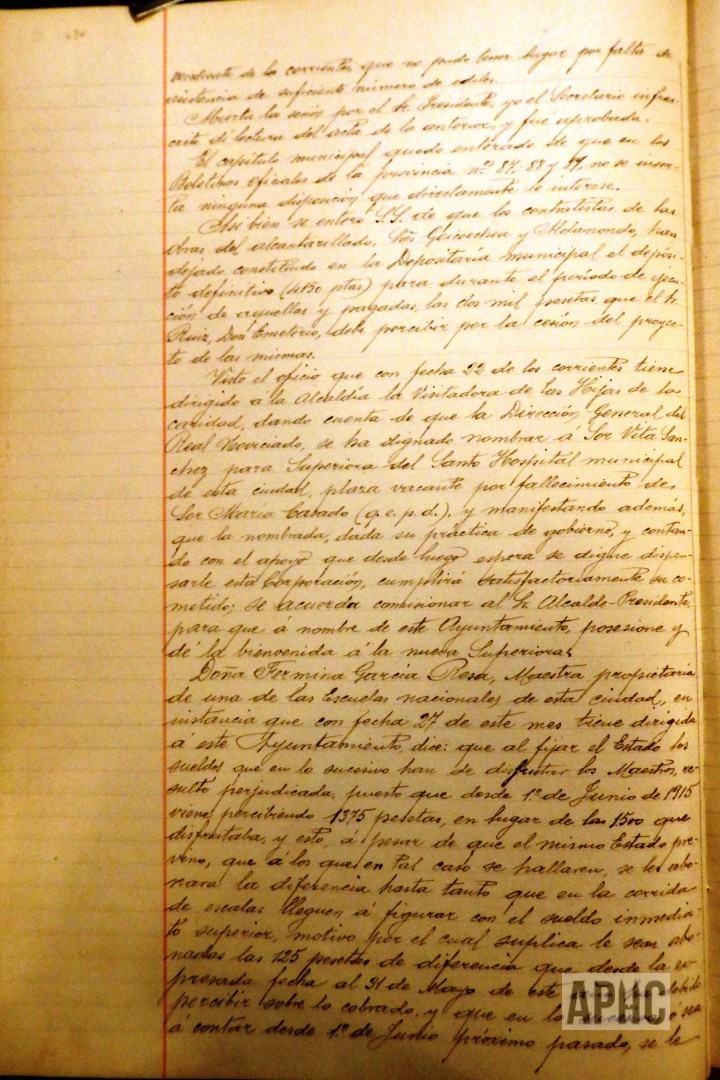 veintisiete de los corrientes, que no pudo tener lugar por falta de
asistencia de suficiente número de ediles.
Abierta la sesión por el Sr. Presidente, yo el Secretario infras-
crito di lectura del acta de la anterior, y fué aprobada.
El capítulo municipal quedó enterado de que en los
Boletines oficiales de la provincia nos 87, 88 y 89, no se inser-
ta ninguna disposición que directamente le interese.
Asi bien se enteró S.S. de que los contratistas de las
obras del alcantarillado, Sres Goicoechea y Melanondo, han
dejado constituido en la Depositaría municipal el depósi-
to definitivo ptas) para durante el período de ejecu-
ción de aquellas y pagadas, las dos mil pesetas que el Sr.
Ruiz, Don Emeterio, debe percibir por la cesión del proyec-
to de las mismas.
Visto el oficio que con fecha 22 de los corrientes tiene
dirigido á la Alcaldía la Visitadora de las Hijas de la
caridad, dando cuenta de que la Dirección General del
Real Noviciado, se ha dignado nombrar á Sor Vita San-
chez para Superiora del Santo Hospital municipal
de esta ciudad, plaza vacante por fallecimiento de
Sor María Casado (q. e. p. d.), y manifestando además,
que la nombrada, dada su práctica de gobierno, y contan-
do con el apoyo que desde luego espera se digne dispen-
sarle esta Corporación, cumplirá satisfactoriamente su co-
metido; se acuerda comisionar al Sr. Alcalde-Presidente,
para que á nombre de este Ayuntamiento, posesione y
dé la bienvenida á la nueva Superiora.
Doña Fermina García Resa, Maestra propietaria
de una de las Escuelas nacionales de esta ciudad, en
instancia que con fecha 27 de este mes tiene dirigida
á este Ayuntamiento, dice: que al fijar el Estado los
sueldos que en lo sucesivo han de disfrutar los Maestros, re-
sultó perjudicada, puesto que desde 1º de Junio de 1915
viene percibiendo 1375 pesetas, en lugar de las 1500 que
disfrutaba, y esto, á pesar de que el mismo Estado pre-
vino, que á los que en tal caso se hallaren, se les abo-
nara la diferencia hasta tanto que en la corrida
de escalas lleguen á figurar con el sueldo inmedia-
to superior, motivo por el cual suplica le sean abo-
nadas las 125 pesetas de diferencia que desde la ex-
presada fecha al 31 de Mayo de este debido
percibir sobre lo cobrado, y que en lo sucesivo ó sea
á contar desde 1º de Junio próximo pasado, se le
APHC